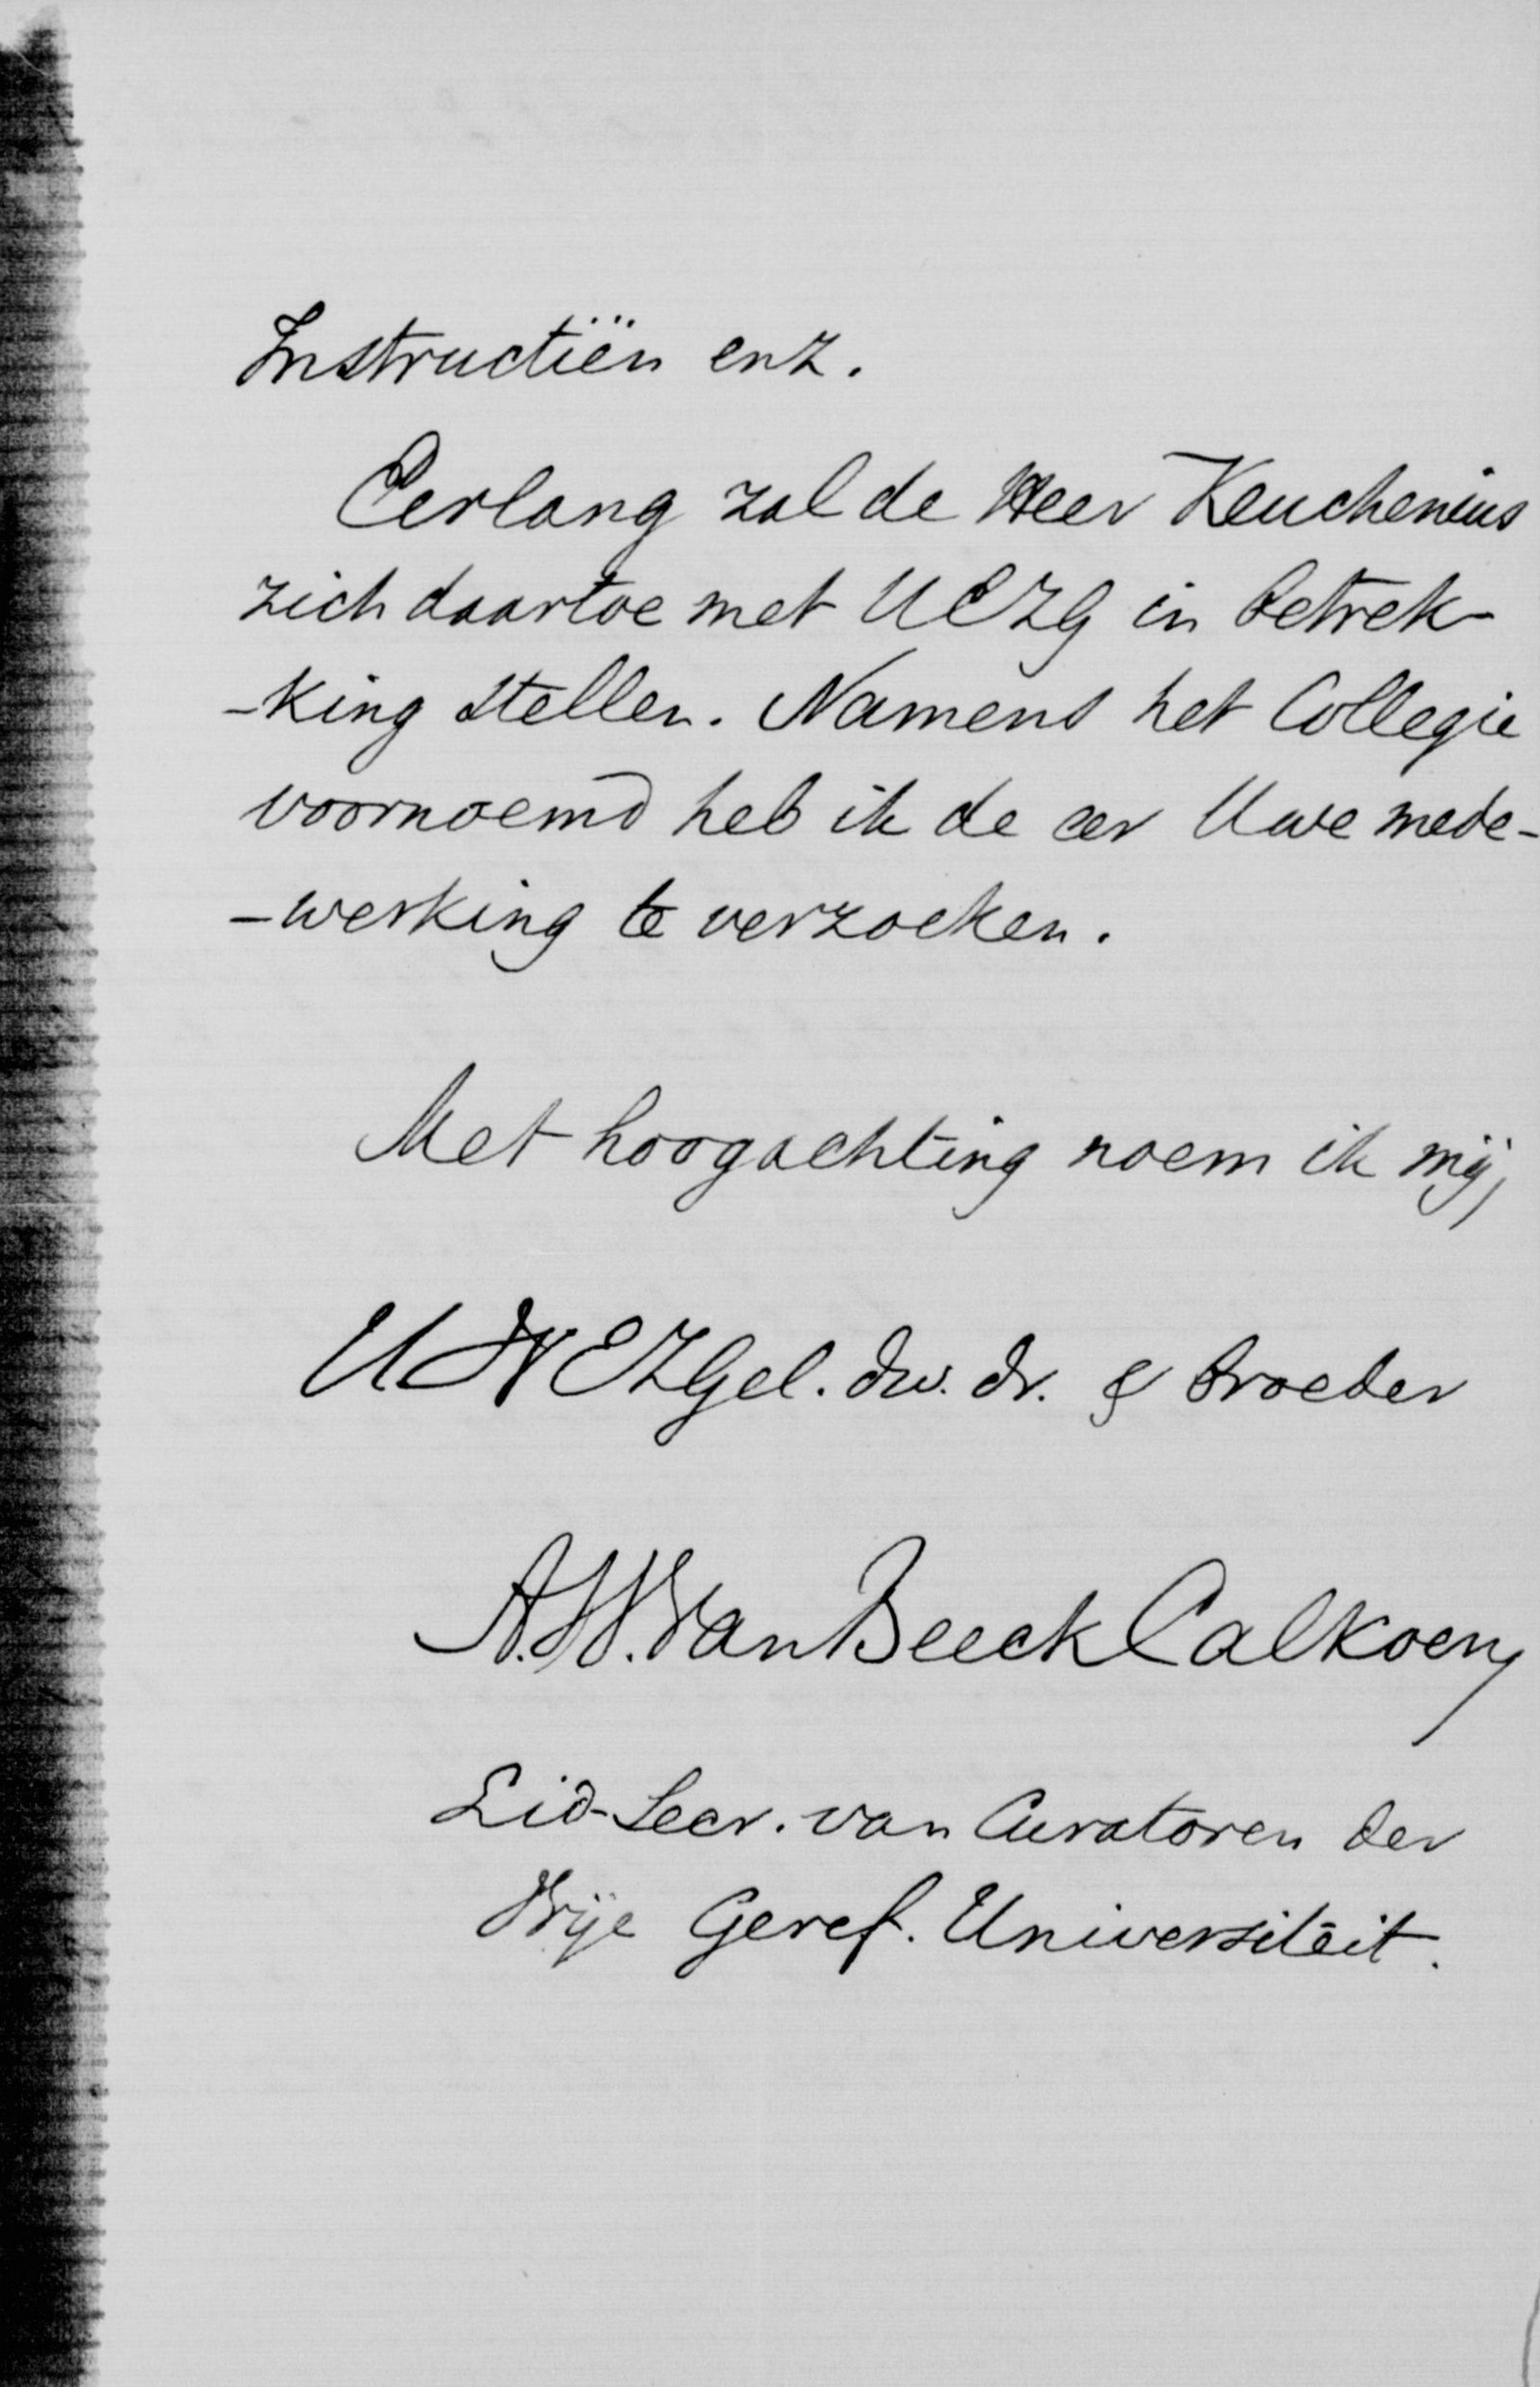 Instructiën enz.
Eerlang zal de Heer Keuchenius
zich daartoe met UEZG in betrek-
-king stellen. Namens het Collegie
voornoemd heb ik de eer Uwe mede-
-werking te verzoeken.
Met hoogachting noem ik mij,
UWEZGel. dw. dr. & broeder
A.W. van Beeck Calkoen,
Lid-Secr. van Curatoren der
Vrije Geref. Universiteit.